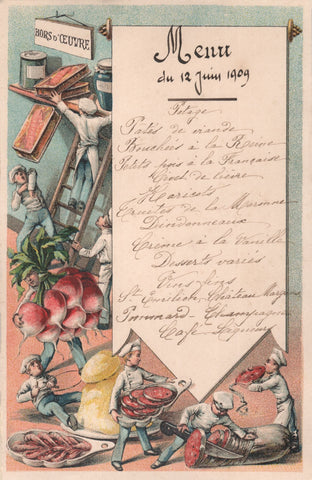 HORS D'ŒUVRE
Menu
du 12 Juin 1909
Potage
Pâtés de viande
Bouchées à la Reine
Petits pois à la Française
Civet de lièvre
Haricots
à la Maronne
Dindonneaux
Crème à la Vanille
Desserts variés
Vins fins
St Emilion - Château Margaux
Pommard - Champagne
Café - Liqueurs